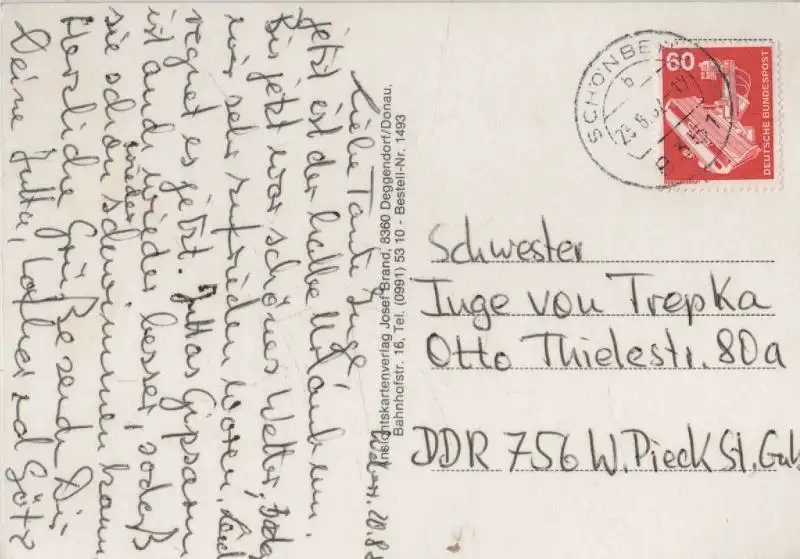 Liebe Tante Inge,
jetzt ist der halbe Urlaub um.
Bis jetzt war schönes Wetter,
wir sehr zufrieden waren. Leid
regnet es jetzt. Juttas Gipsarm
ist auch wieder besser, sodaß
sie schon wieder schwimmen kann
Herzliche Grüße senden Dir
Deine Jutta, Lothar und Götz
Ansichtskartenverlag Josef Brand, 8360 Deggendorf/Donau.
Bahnhofstr. 16, Tel. (0991) 53 10 - Bestell-Nr. 1493
SCHÖNBE
60
DEUTSCHE BUNDESPOST
Schwester
Inge von Trepka
Otto Thielestr. 80a
DDR 756 W. Pieck St. Gub